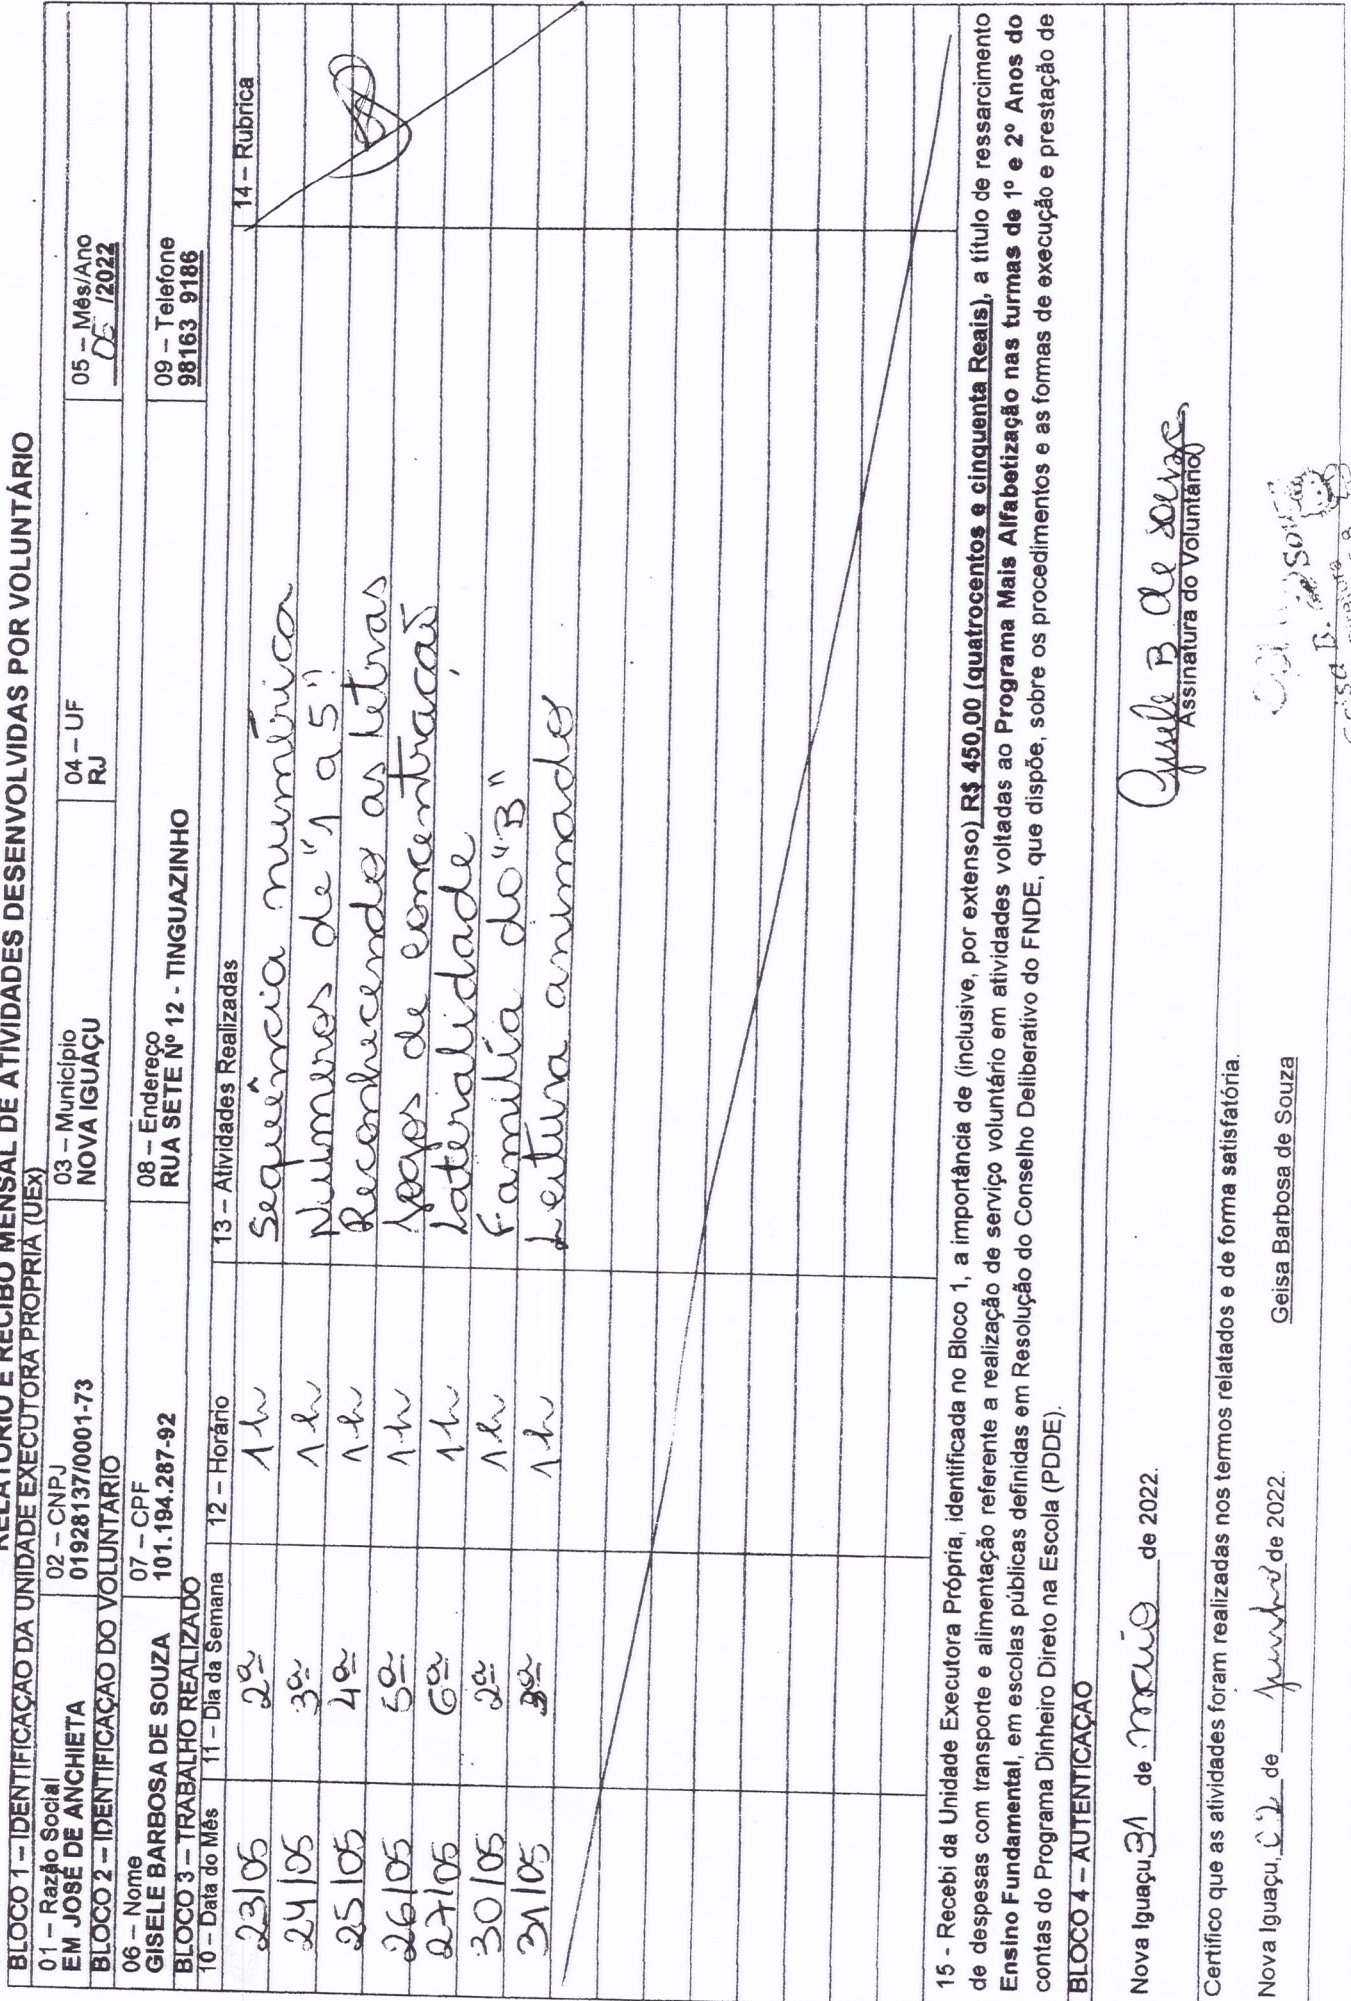 RELATÓRIO E RECIBO MENSAL DE ATIVIDADES DESENVOLVIDAS POR VOLUNTÁRIO
BLOCO 1 – IDENTIFICAÇÃO DA UNIDADE EXECUTORA PRÓPRIA (UEx)
01 – Razão Social 02 – CNPJ 03 – Município 04 – UF 05 – Mês/Ano
EM JOSÉ DE ANCHIETA 01928137/0001-73 NOVA IGUAÇU RJ 05 /2022
BLOCO 2 – IDENTIFICAÇÃO DO VOLUNTÁRIO
06 – Nome 07 – CPF 08 – Endereço 09 – Telefone
GISELE BARBOSA DE SOUZA 101.194.287-92 RUA SETE Nº 12 - TINGUAZINHO 98163 9186
BLOCO 3 – TRABALHO REALIZADO
10 – Data do Mês 11 – Dia da Semana 12 – Horário 13 – Atividades Realizadas 14 – Rubrica
23/05 2ª 1h Sequência numérica
24/05 3ª 1h Números de "1 a 5"
25/05 4ª 1h Reconhecendo as letras
26/05 5ª 1h Jogos de concentração
27/05 6ª 1h Lateralidade
30/05 2ª 1h Família do "B"
31/05 3ª 1h Leitura animado
15 - Recebi da Unidade Executora Própria, identificada no Bloco 1, a importância de (inclusive, por extenso) R$ 450,00 (quatrocentos e cinquenta Reais), a título de ressarcimento
de despesas com transporte e alimentação referente a realização de serviço voluntário em atividades voltadas ao Programa Mais Alfabetização nas turmas de 1º e 2º Anos do
Ensino Fundamental, em escolas públicas definidas em Resolução do Conselho Deliberativo do FNDE, que dispõe, sobre os procedimentos e as formas de execução e prestação de
contas do Programa Dinheiro Direto na Escola (PDDE).
BLOCO 4 – AUTENTICAÇÃO
Nova Iguaçu, 31 de maio de 2022. Gisele B de Souza
Assinatura do Voluntário
Certifico que as atividades foram realizadas nos termos relatados e de forma satisfatória.
Nova Iguaçu, 02 de junho de 2022. Geisa Barbosa de Souza